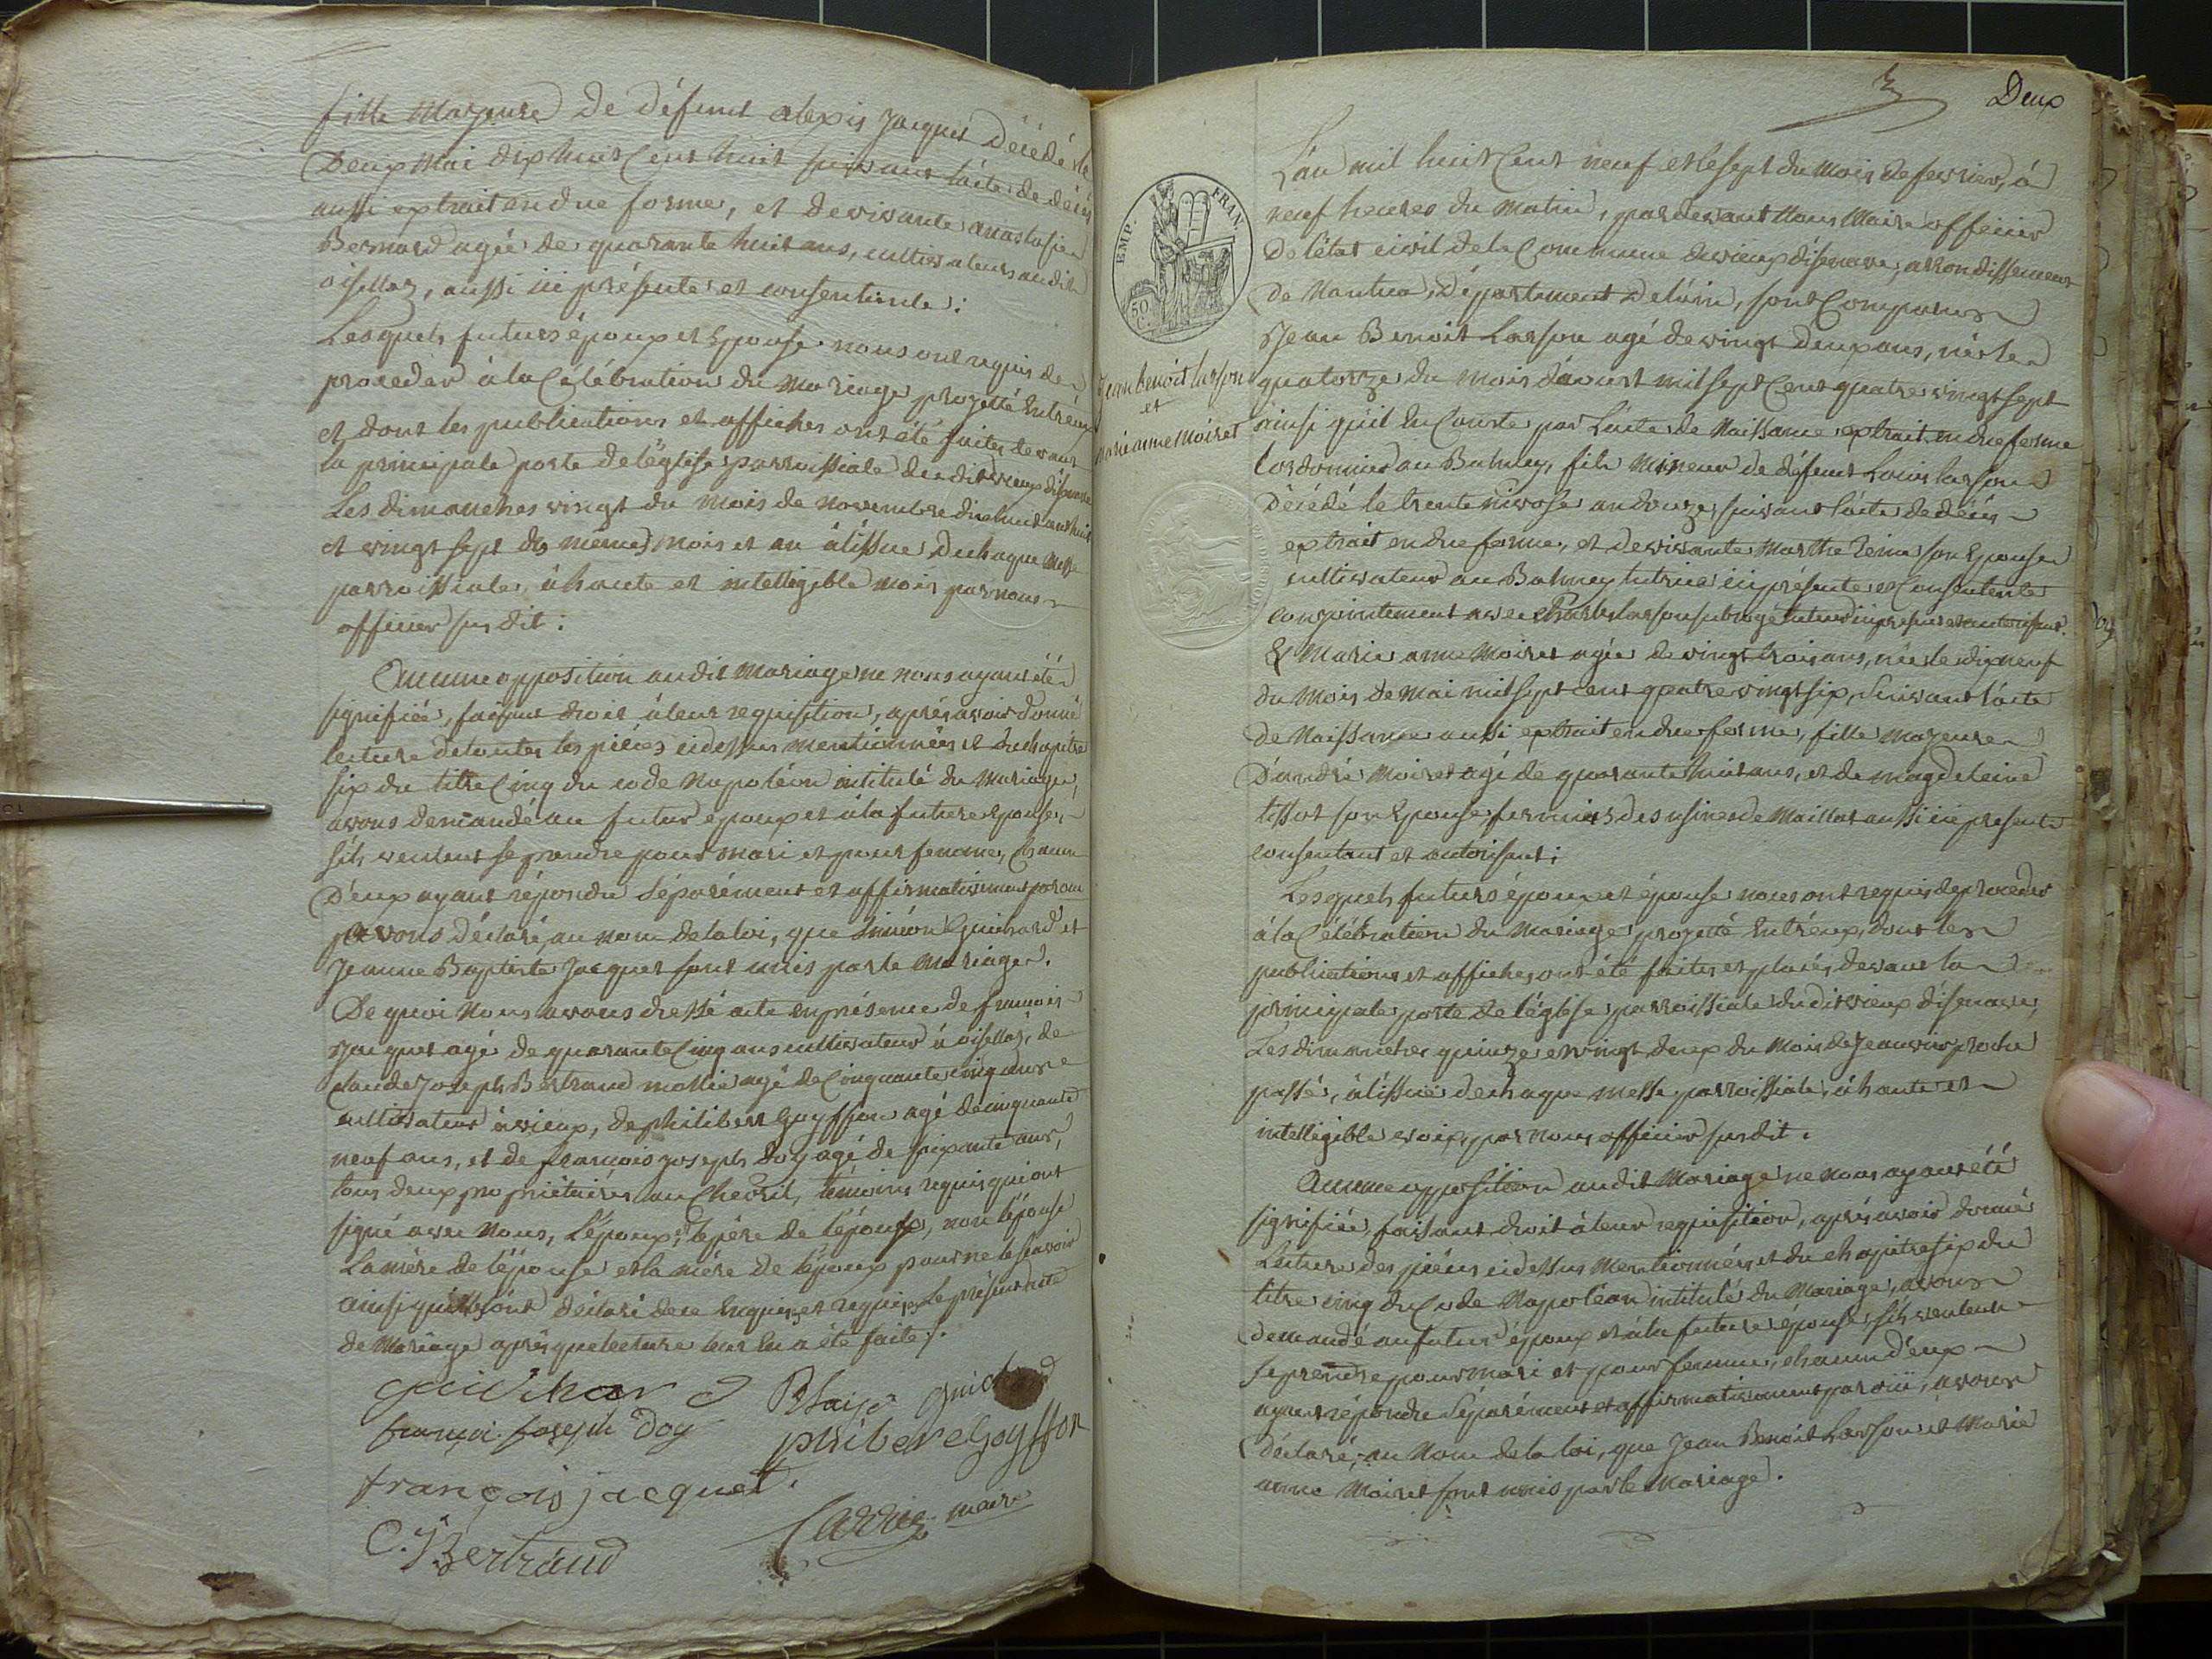 fille Mageure de défunt alexis Jacquet décédé le
Deux Mai dix huit Cent huit suivant l'acte de décès
aussi extrait en due forme, et de vivante anastasie
Bernard agée de quarante huit ans, cultivateurs audit
oisellaz, aussi ici présente et consentente :
Lesquels futurs époux et Epouse nous ont requis de
proceder à la Célébration du Mariage projetté Entréux
et dont les publications et affiches ont été faites devant
la principale porte de léglise parroissiale dudit vieux disenave
Les dimanches vingt du mois de novembre dix huit cent huit
et vingt sept du même mois et an à lissue de chaque Messe
parroissiale, à haute et intelligible voix par nous
officier sus dit :
Aucune opposition audit Mariage ne nous ayant été
signifiée, faisant droit à leur requisition, après avoir donné
lecture de toutes les pièces cidessus mentionnées et du chapitre
six du titre Cinq du code Napoléon intitulé du Mariage,
avons demandé au futur époux et à la future Epouse,
sils veulent se prendre pour mari et pour femme, Chacun
D'eux ayant répondu séparément et affirmativement par oui
avons déclaré au nom de la loi, que Siméon Guichard et
Jeanne Baptiste Jacquet sont unis par le Mariage.
De quoi Nous avons dressé acte en présence de francois
Jacquet agé de quarante Cinq ans cultivateur à oisellaz, de
claude Joseph Bertrand agé de Cinquante cinq ans
cultivateur à vieux, de philibert Goyffon agé de cinquante
neuf ans, et de francois joseph Doy agé de soixante ans,
tous deux propriétaires au Chevril, témoins requis qui ont
signé avec Nous, L'époux, le père de l'époux, non l'épouse
La mère de l'épouse et la mère de l'époux pour ne le savoir
ainsi quils ont déclaré de ce Enquis et requis, Le présent acte
de Mariage après que lecture leur En a été faite.
Guichard Blaise Guichard
françoi joseph Doy philiber Goyffon
françois jacquet.
C. J Bertrand Carrier maire
Deux
EMP. FRAN.
50 C.
Jean benoit Larson
et
marie anne Moiret
L'an mil huit Cent neuf et le sept du Mois de fevrier, à
neuf heures du Matin, pardevant Nous Maire officier
De l'état civil de la Commune de vieux disenave, arrondissement
de Nantua, Département de l'ain, sont Comparus
Jean Benoit Larson agé de vingt Deux ans, né le
quatorze du mois d'avust mil sept Cent quatre vingt sept
ainsi quil En Conste par L'acte de Naissance extrait en due forme
Cordonnier au Balmey, fils Mineur de défunt Louis Larson
Décédé le trente nivose an douze, suivant l'acte de décès
extrait en due forme, et de vivante Marthe son Epouse
cultivateur au Balmey tutrice ici présente et Consentente
conjointement avec Charles Larson subrogé tuteur ici présent et autorisant.
Et Marie anne Moiret agée de vingt trois ans, née le dix neuf
du Mois de Mai mil sept cent quatre vingt six, Suivant l'acte
de Naissance aussi extrait en due forme, fille mageure
D'andré Moiret agé de quarante huit ans, et de magdeleine
tissot son Epouse fermiers des usines de Maillat aussi ici présents
consentant et autorisant ;
Lesquels futurs époux et épouse nous ont requis de proceder
à la Célébration du Mariage projetté Entréux, dont les
publications et affiches ont été faites et placés devant la
principale porte de léglise parroissiale dudit vieux disenave,
Les dimanches quinze et vingt deux du Mois de Jeanvier proche
passé, à lissue de chaque messe parroissiale, à haute et
intelligible voix, par nous officier susdit.
Aucune opposition audit Mariage ne nous ayant été
signifiée, faisant droit à leur requisition, après avoir donné
Lecture des pièces cidessus Mentionnées et du chapitre six du
titre cinq du Code Napoléon intitulé du Mariage, avons
demandé au futur époux et à la future épouse, sils veulent
se prendre pour mari et pour femme, chacun d'eux
ayant répondu Séparément et affirmativement par oui, avons
déclaré, au Nom de la loi, que Jean Benoit Larson et Marie
anne Moiret sont unis par le Mariage.